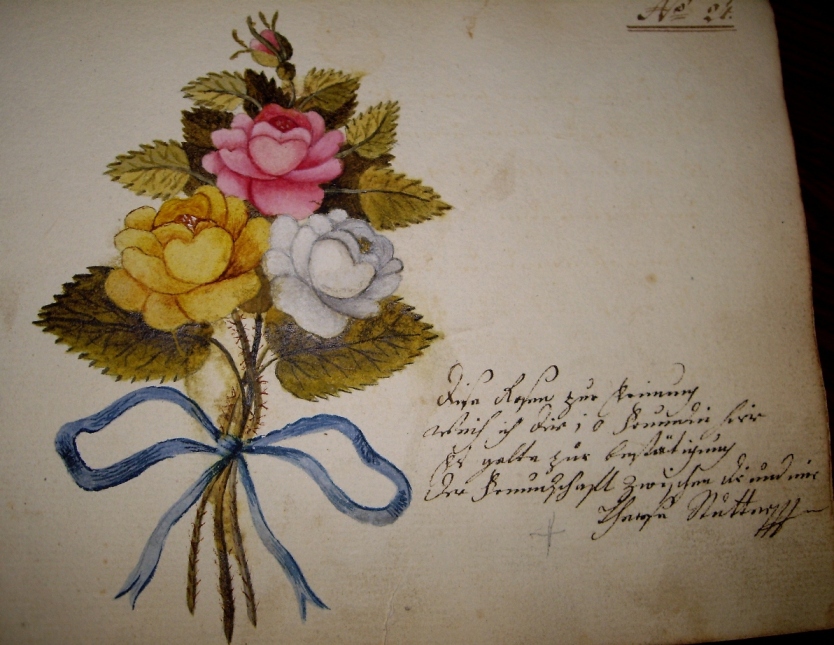 No 24.
Diese Rosen zur Erinnrung
weih ich dir, o Freundin hier
Es gelte zur bestätigung
Der Freundschaft zwischen dir und mir
Therese